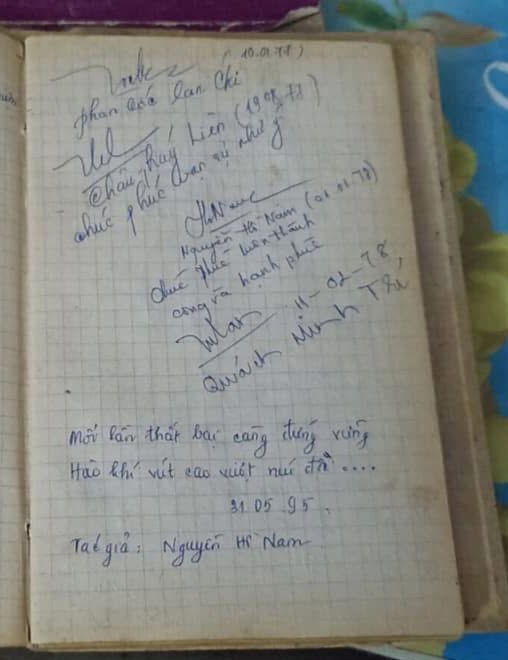 10.01.77)
phan Lốc Lan Chi
Châu Thúy Liên (19.08.77)
chúc phúc vạn sự như ý
Nguyễn Hồ Nam (01.01.78)
chúc phúc luôn thành
công và hạnh phúc
11-02-78,
Quách Minh Trí
Mỗi lần thất bại càng đứng vững
Hào khí vút cao vượt núi đồi....
31.05.95.
Tác giả: Nguyễn Hồ Nam